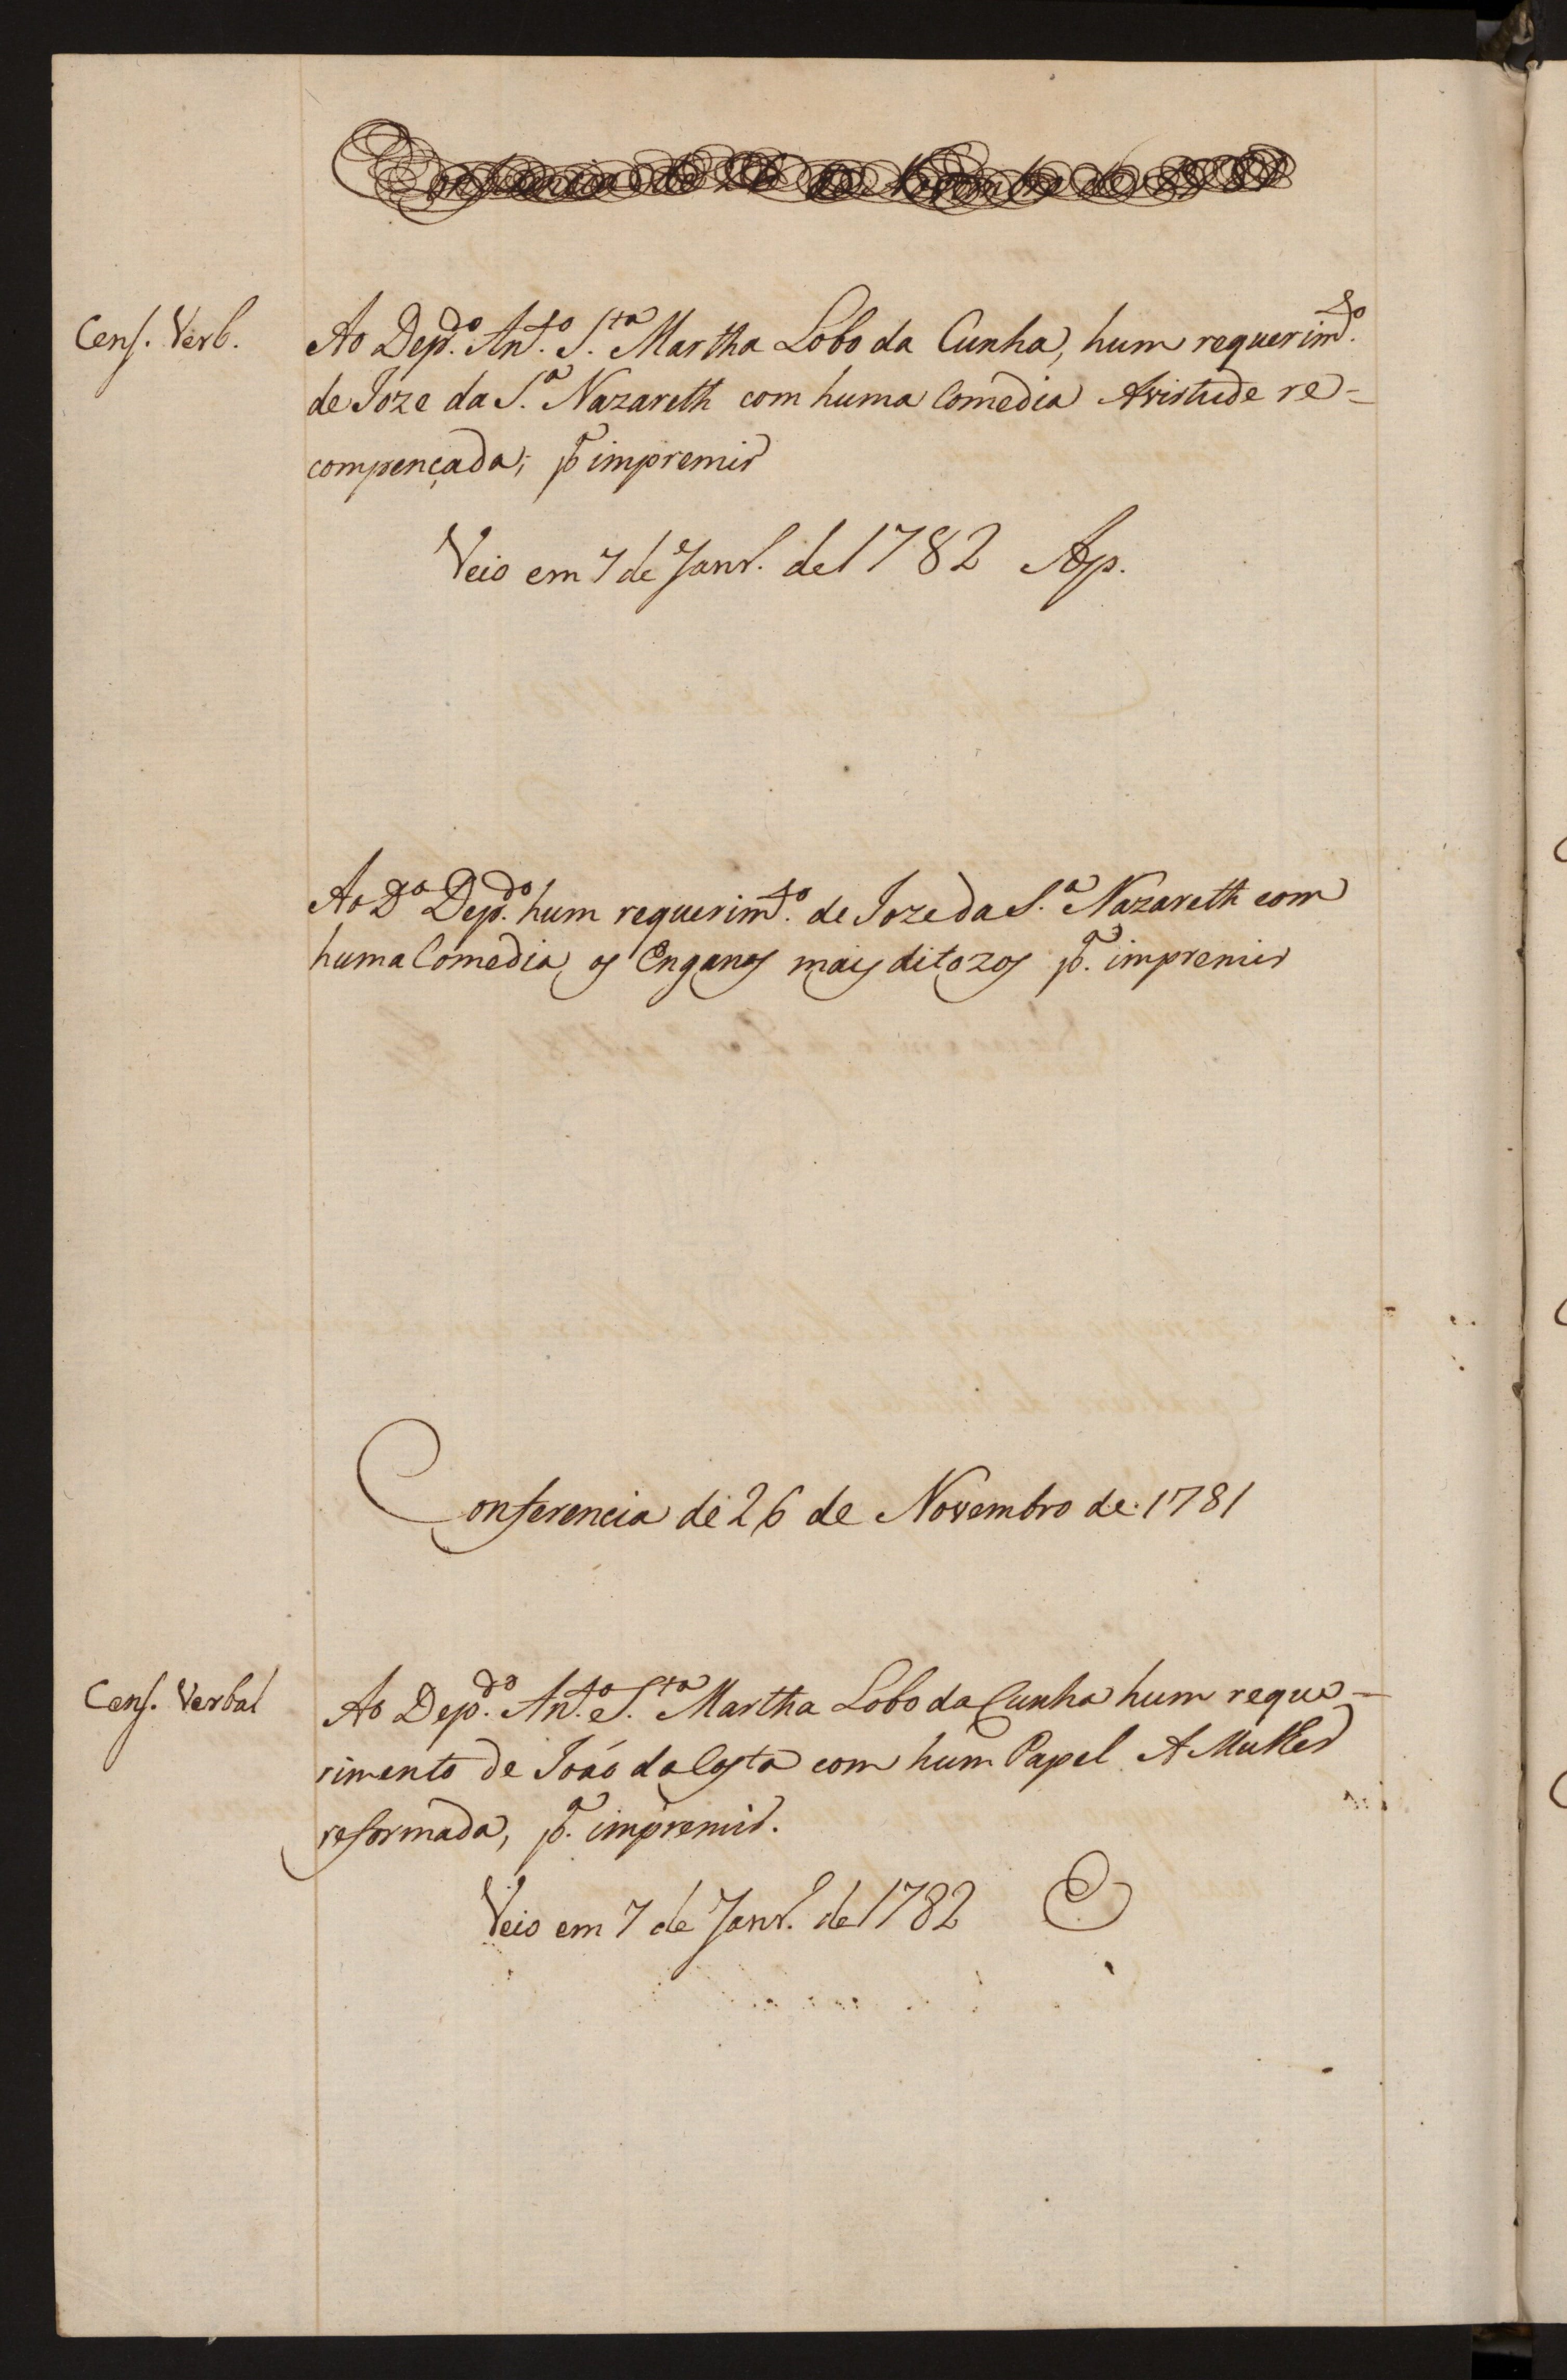 Conferencia de 26 de Novembro de 1781
Cens. Verb.
Ao Dep.do An.to S.ta Martha Lobo da Cunha, hum requerim.to
de Joze da S.a Nazareth com huma Comedia Avirtude re-
compençada; p.a impremir
Veio em 7 de Janr.o de 1782 Ap.
Ao D.o Dep.do hum requerim.to de Joze da S.a Nazareth com
huma Comedia, os Enganos mais ditozos p.a impremir
Conferencia de 26 de Novembro de 1781
Cens. Verbal
Ao Dep.do An.to S.ta Martha Lobo da Cunha hum reque-
rimento de João da Costa com hum Papel A Mulher
reformada, p.a impremir.
Veio em 7 de Janr.o de 1782